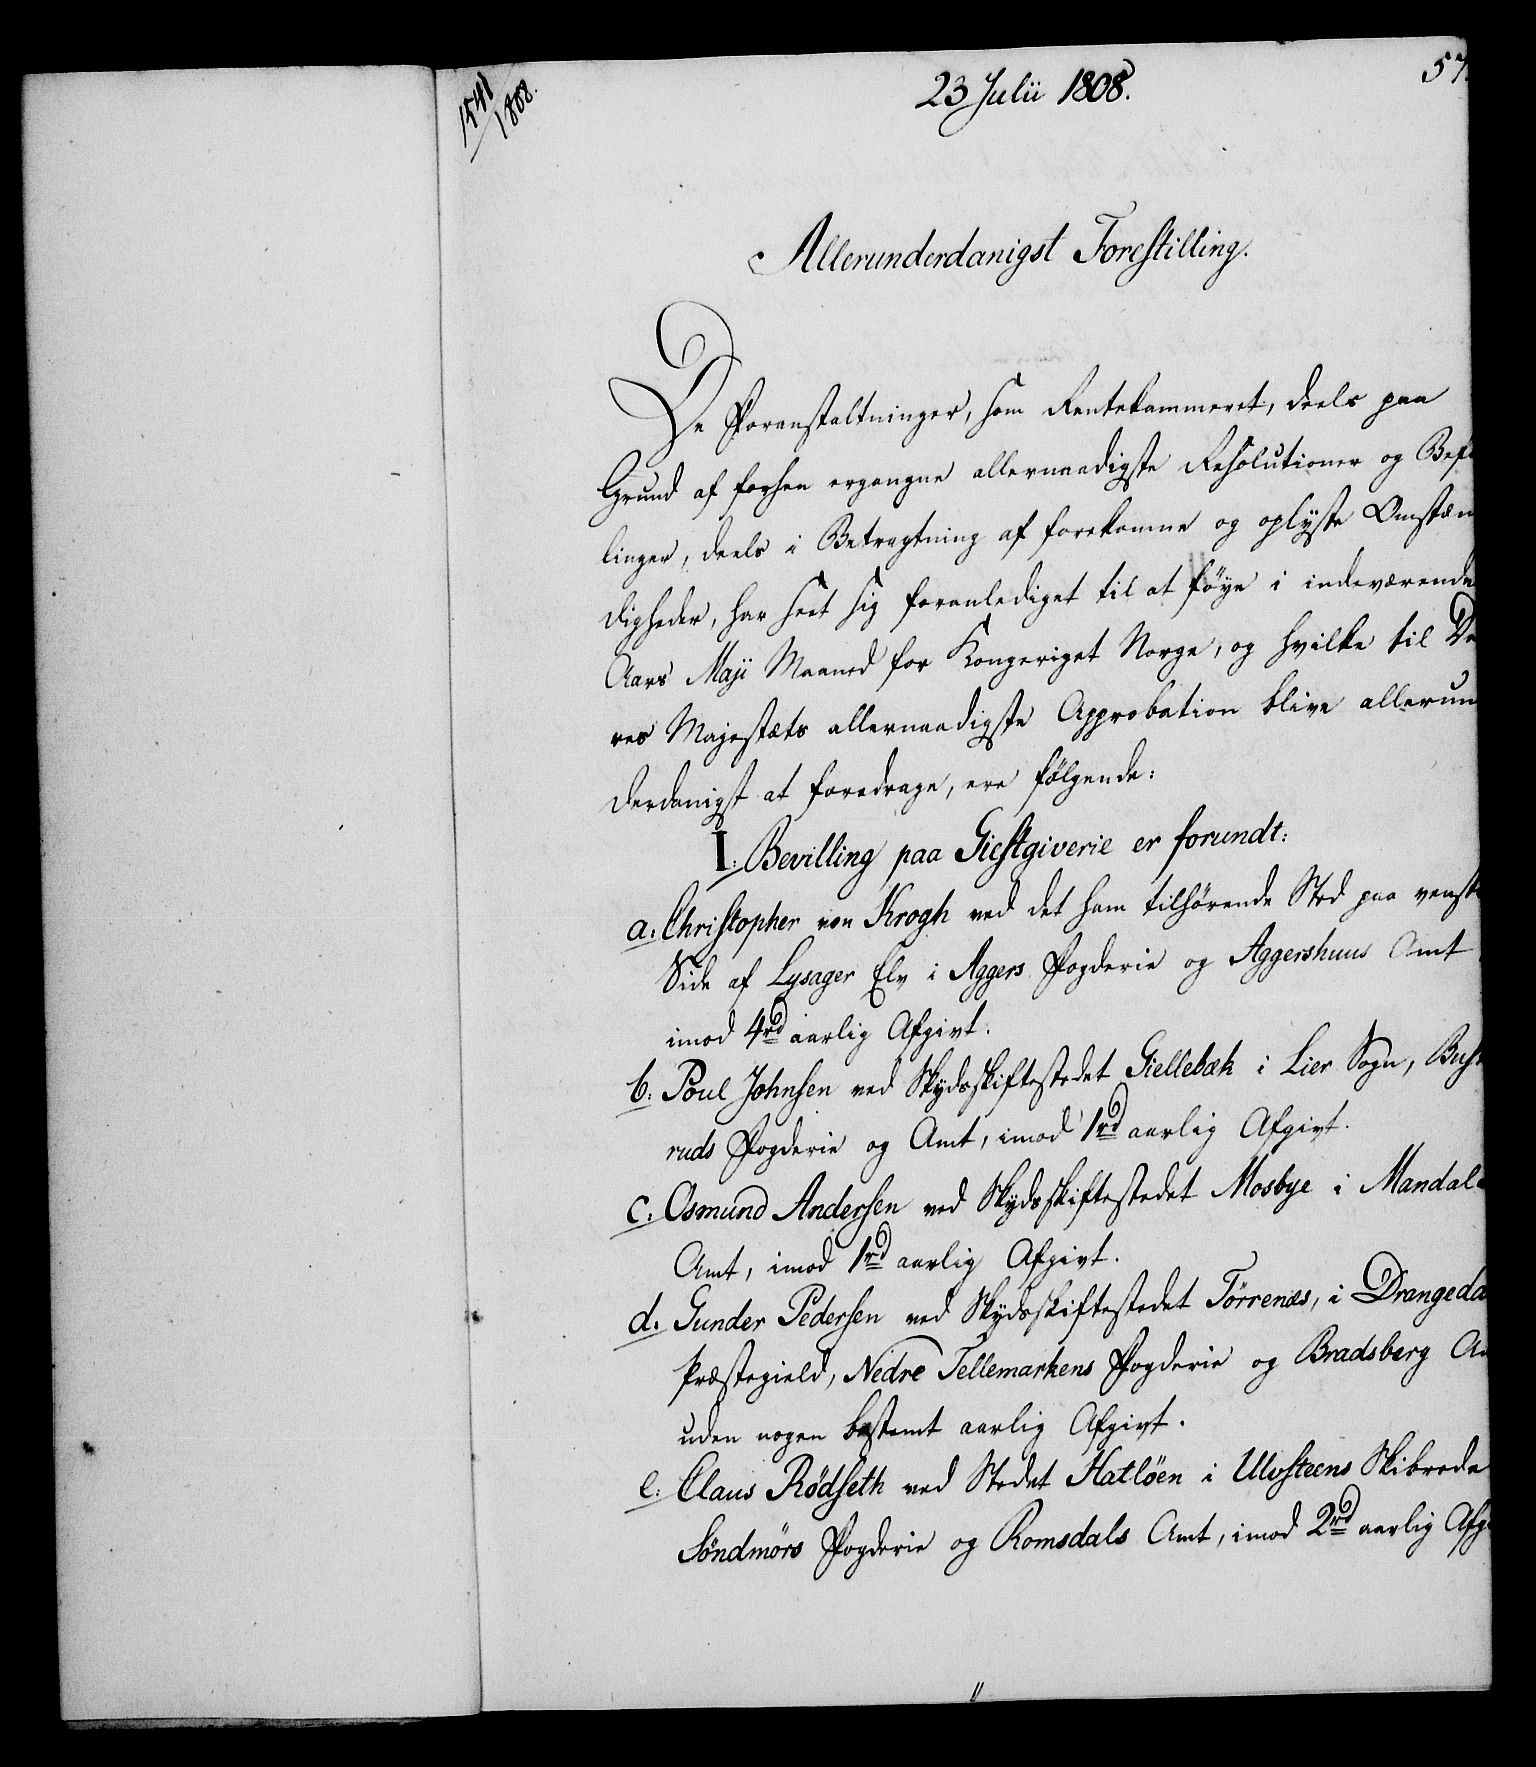 1541/1808.
23 Julii 1808.
57
Allerunderdanigst Forestilling.
De Foranstaltninger, som Rentekammeret, deels paa
Grund af forhen ergangne allernaadigste Resolutioner og Befa
linger, deels i Betragtning af forekomne og oplyste Omstæn
digheder, har seet sig foranlediget til at föye i indeværende
Aars Maji Maaned for Kongeriget Norge, og hvilke til De
res Majestæts allernaadigste Approbation blive allerun
derdanigst at foredrage, ere fölgende:
I. Bevilling paa Giestgiverie er forundt:
a. Christopher von Krogh ved det ham tilhörende Sted paa venst
Side af Lysager Elv i Aggers Fogderie og Aggershuus Amt
imod 4rd aarlig Afgivt.
b. Poul Johnsen ved Skydsskiftestedet Giellebæk i Lier Sogn, Busk
ruds Fogderie og Amt, imod 1rd aarlig Afgivt.
c. Osmund Andersen ved Skydsskiftestedet Mosbye i Mandals
Amt, imod 1rd aarlig Afgivt.
d. Gunder Pedersen ved Skydsskiftestedet Törrenæs, i Drangeda
Præstegield, Nedre Tellemarkens Fogderie og Bradsberg A
uden nogen bestemt aarlig Afgivt.
e. Claus Rødseth ved Stedet Hatlöen i Ulvsteens Skibrede
Söndmörs Fogderie og Romsdals Amt, imod 2rd aarlig Afg